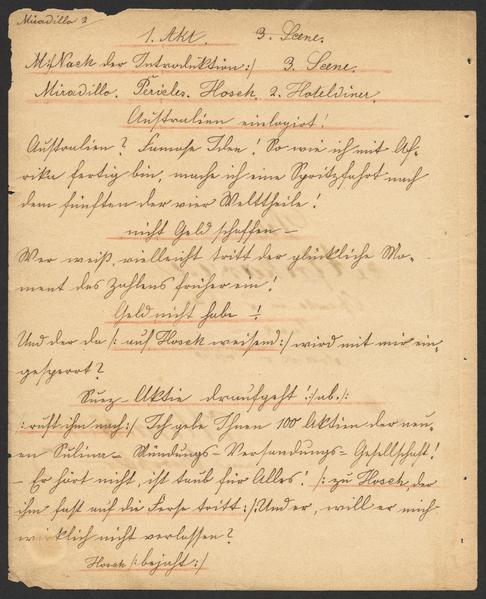 Miradillo 2
1. Akt. 3. Scene.
M/: Nach der Introduktion :/ 3. Scene.
Miradillo. Pericles. Hosch. 2. Hoteldiner.
Australien einlogirt!
Australien? Famose Idee! So wie ich mit Af-
rika fertig bin, mache ich eine Spritzfahrt nach
dem fünften der vier Welttheile!
nicht Geld schaffen –
Wer weiß, vielleicht tritt der glückliche Mo-
ment des Zahlens früher ein!
Geld nicht habe –!
Und der da /: auf Hosch weisend :/ wird mit mir ein-
gesperrt?
Suez-Aktie draufgeht! /: ab. :/
/: ruft ihm nach :/ Ich gebe Ihnen 100 Aktien der neu-
en Sulina-Mündungs-Versandungs-Gesellschaft!
– Er hört nicht, ist taub für Alles! /: zu Hosch, der
ihm fast auf die Ferse tritt :/ Und er, will er mich
wirklich nicht verlassen?
Hosch /: bejaht :/